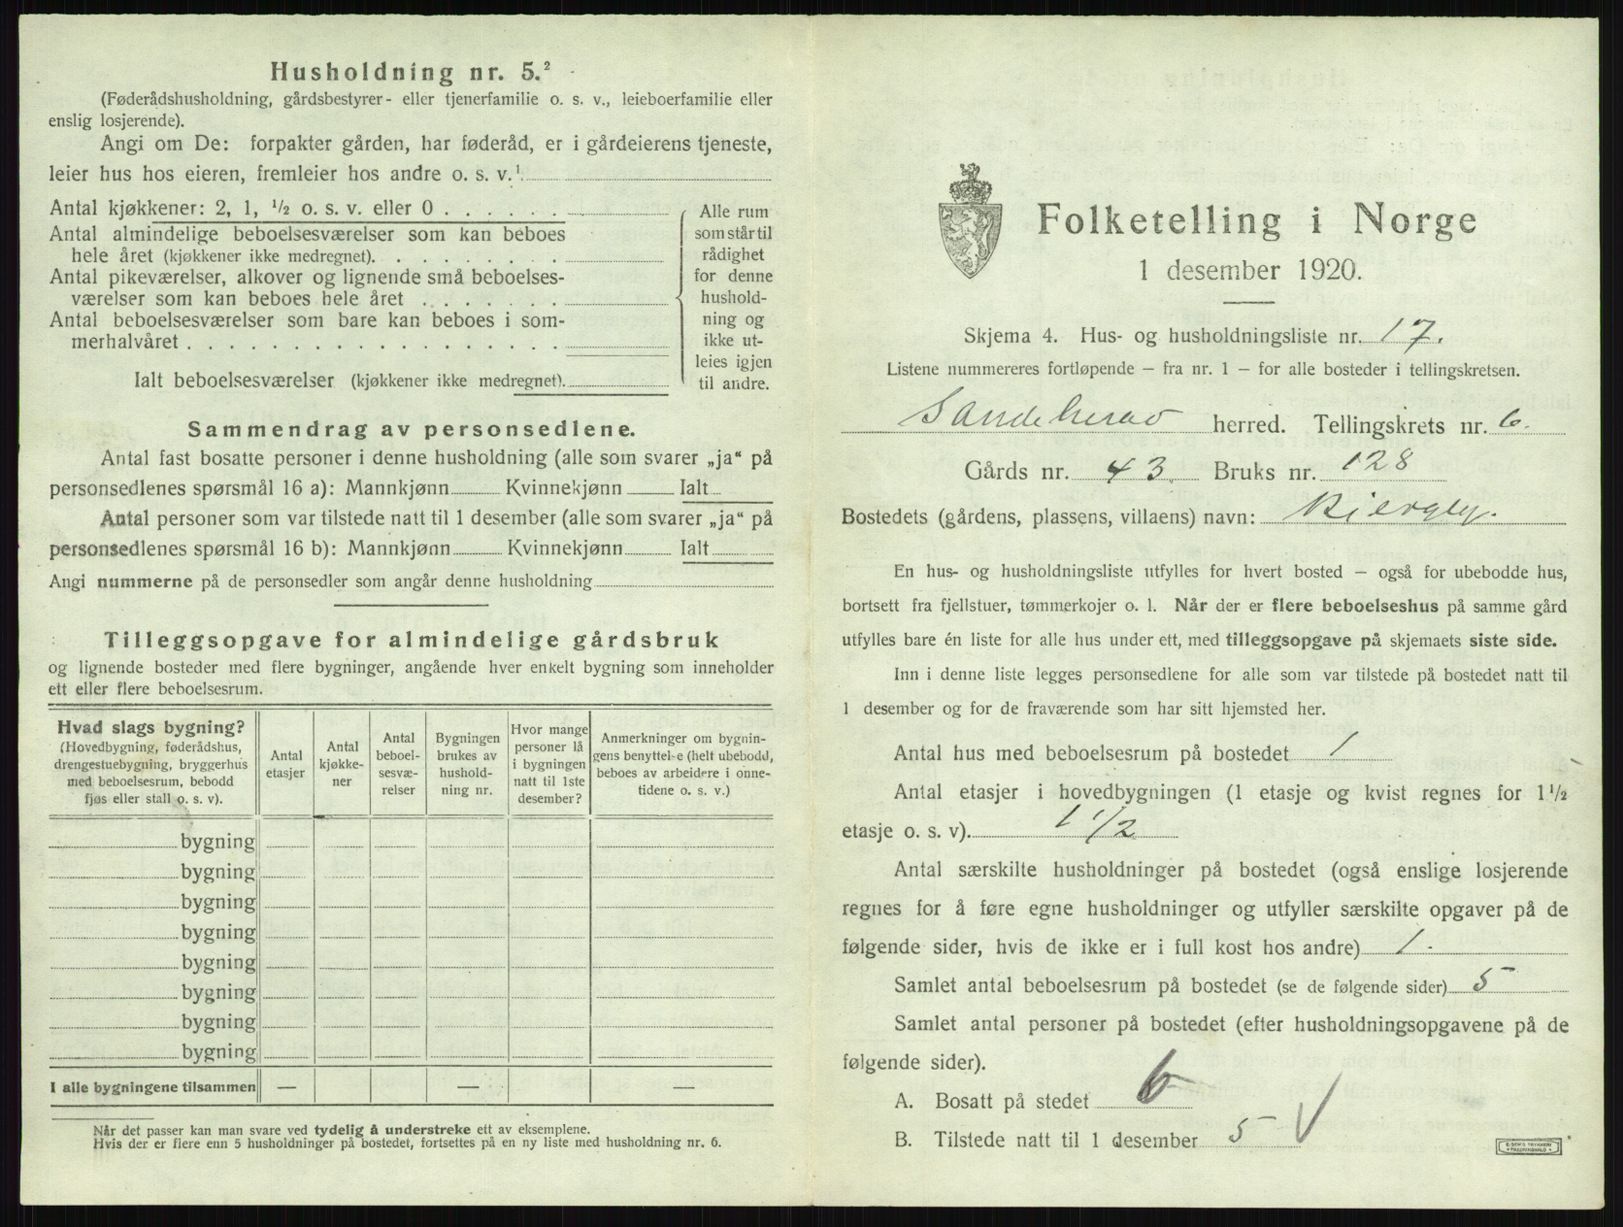 Husholdning nr. 5.²
(Føderådshusholdning, gårdsbestyrer- eller tjenerfamilie o. s. v., leieboerfamilie eller
enslig losjerende).
Angi om De: forpakter gården, har føderåd, er i gårdeierens tjeneste,
leier hus hos eieren, fremleier hos andre o. s. v.¹
Antal kjøkkener: 2, 1, ½ o. s. v. eller 0
Antal almindelige beboelsesværelser som kan beboes
hele året (kjøkkener ikke medregnet).
Antal pikeværelser, alkover og lignende små beboelses-
værelser som kan beboes hele året
Antal beboelsesværelser som bare kan beboes i som-
merhalvåret
Ialt beboelsesværelser (kjøkkener ikke medregnet).
Alle rum
som står til
rådighet
for denne
hushold-
ning og
ikke ut-
leies igjen
til andre.
Sammendrag av personsedlene.
Antal fast bosatte personer i denne husholdning (alle som svarer „ja“ på
personsedlenes spørsmål 16 a): Mannkjønn Kvinnekjønn Ialt
Antal personer som var tilstede natt til 1 desember (alle som svarer „ja“ på
personsedlenes spørsmål 16 b): Mannkjønn Kvinnekjønn Ialt
Angi nummerne på de personsedler som angår denne husholdning
Tilleggsopgave for almindelige gårdsbruk
og lignende bosteder med flere bygninger, angående hver enkelt bygning som inneholder
ett eller flere beboelsesrum.
Hvad slags bygning?
(Hovedbygning, føderådshus,
drengestuebygning, bryggerhus
med beboelsesrum, bebodd
fjøs eller stall o. s. v).
Antal
etasjer
Antal
kjøkke-
ner
Antal
beboel-
sesvæ-
relser
Bygningen
brukes av
hushold-
ning nr.
Hvor mange
personer lå
i bygningen
natt til 1ste
desember?
Anmerkninger om bygnin-
gens benyttelse (helt ubebodd,
beboes av arbeidere i onne-
tidene o. s. v.)
bygning
bygning
bygning
bygning
bygning
bygning
bygning
bygning
I alle bygningene tilsammen — — —
Når det passer kan man svare ved tydelig å understreke ett av eksemplene.
Hvis der er flere enn 5 husholdninger på bostedet, fortsettes på en ny liste med husholdning nr. 6.
Folketelling i Norge
1 desember 1920.
Skjema 4. Hus- og husholdningsliste nr. 17.
Listene nummereres fortløpende – fra nr. 1 – for alle bosteder i tellingskretsen.
Sandeherav herred. Tellingskrets nr. 6.
Gårds nr. 43. Bruks nr. 128
Bostedets (gårdens, plassens, villaens) navn: Biergly.
En hus- og husholdningsliste utfylles for hvert bosted – også for ubebodde hus,
bortsett fra fjellstuer, tømmerkojer o. l. Når der er flere beboelseshus på samme gård
utfylles bare én liste for alle hus under ett, med tilleggsopgave på skjemaets siste side.
Inn i denne liste legges personsedlene for alle som var tilstede på bostedet natt til
1 desember og for de fraværende som har sitt hjemsted her.
Antal hus med beboelsesrum på bostedet 1
Antal etasjer i hovedbygningen (1 etasje og kvist regnes for 1½
etasje o. s. v). 1 1/2
Antal særskilte husholdninger på bostedet (også enslige losjerende
regnes for å føre egne husholdninger og utfyller særskilte opgaver på de
følgende sider, hvis de ikke er i full kost hos andre) 1.
Samlet antal beboelsesrum på bostedet (se de følgende sider) 5
Samlet antal personer på bostedet (efter husholdningsopgavene på de
følgende sider).
A. Bosatt på stedet 6
B. Tilstede natt til 1 desember 5 √